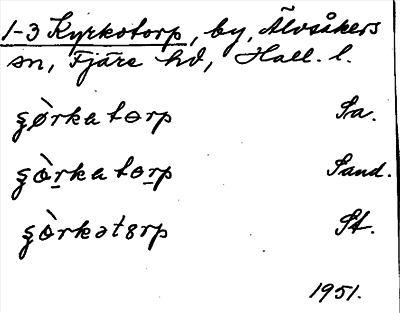 1-3 Kyrkotorp, by, Älvsåkers
sn, Fjäre hd, Hall. l.
ʂø̀rkatɵrp Sa.
ʂɵ̀rkatɵrp Sand.
ʂɵ̀rkət8rp St.
1951.